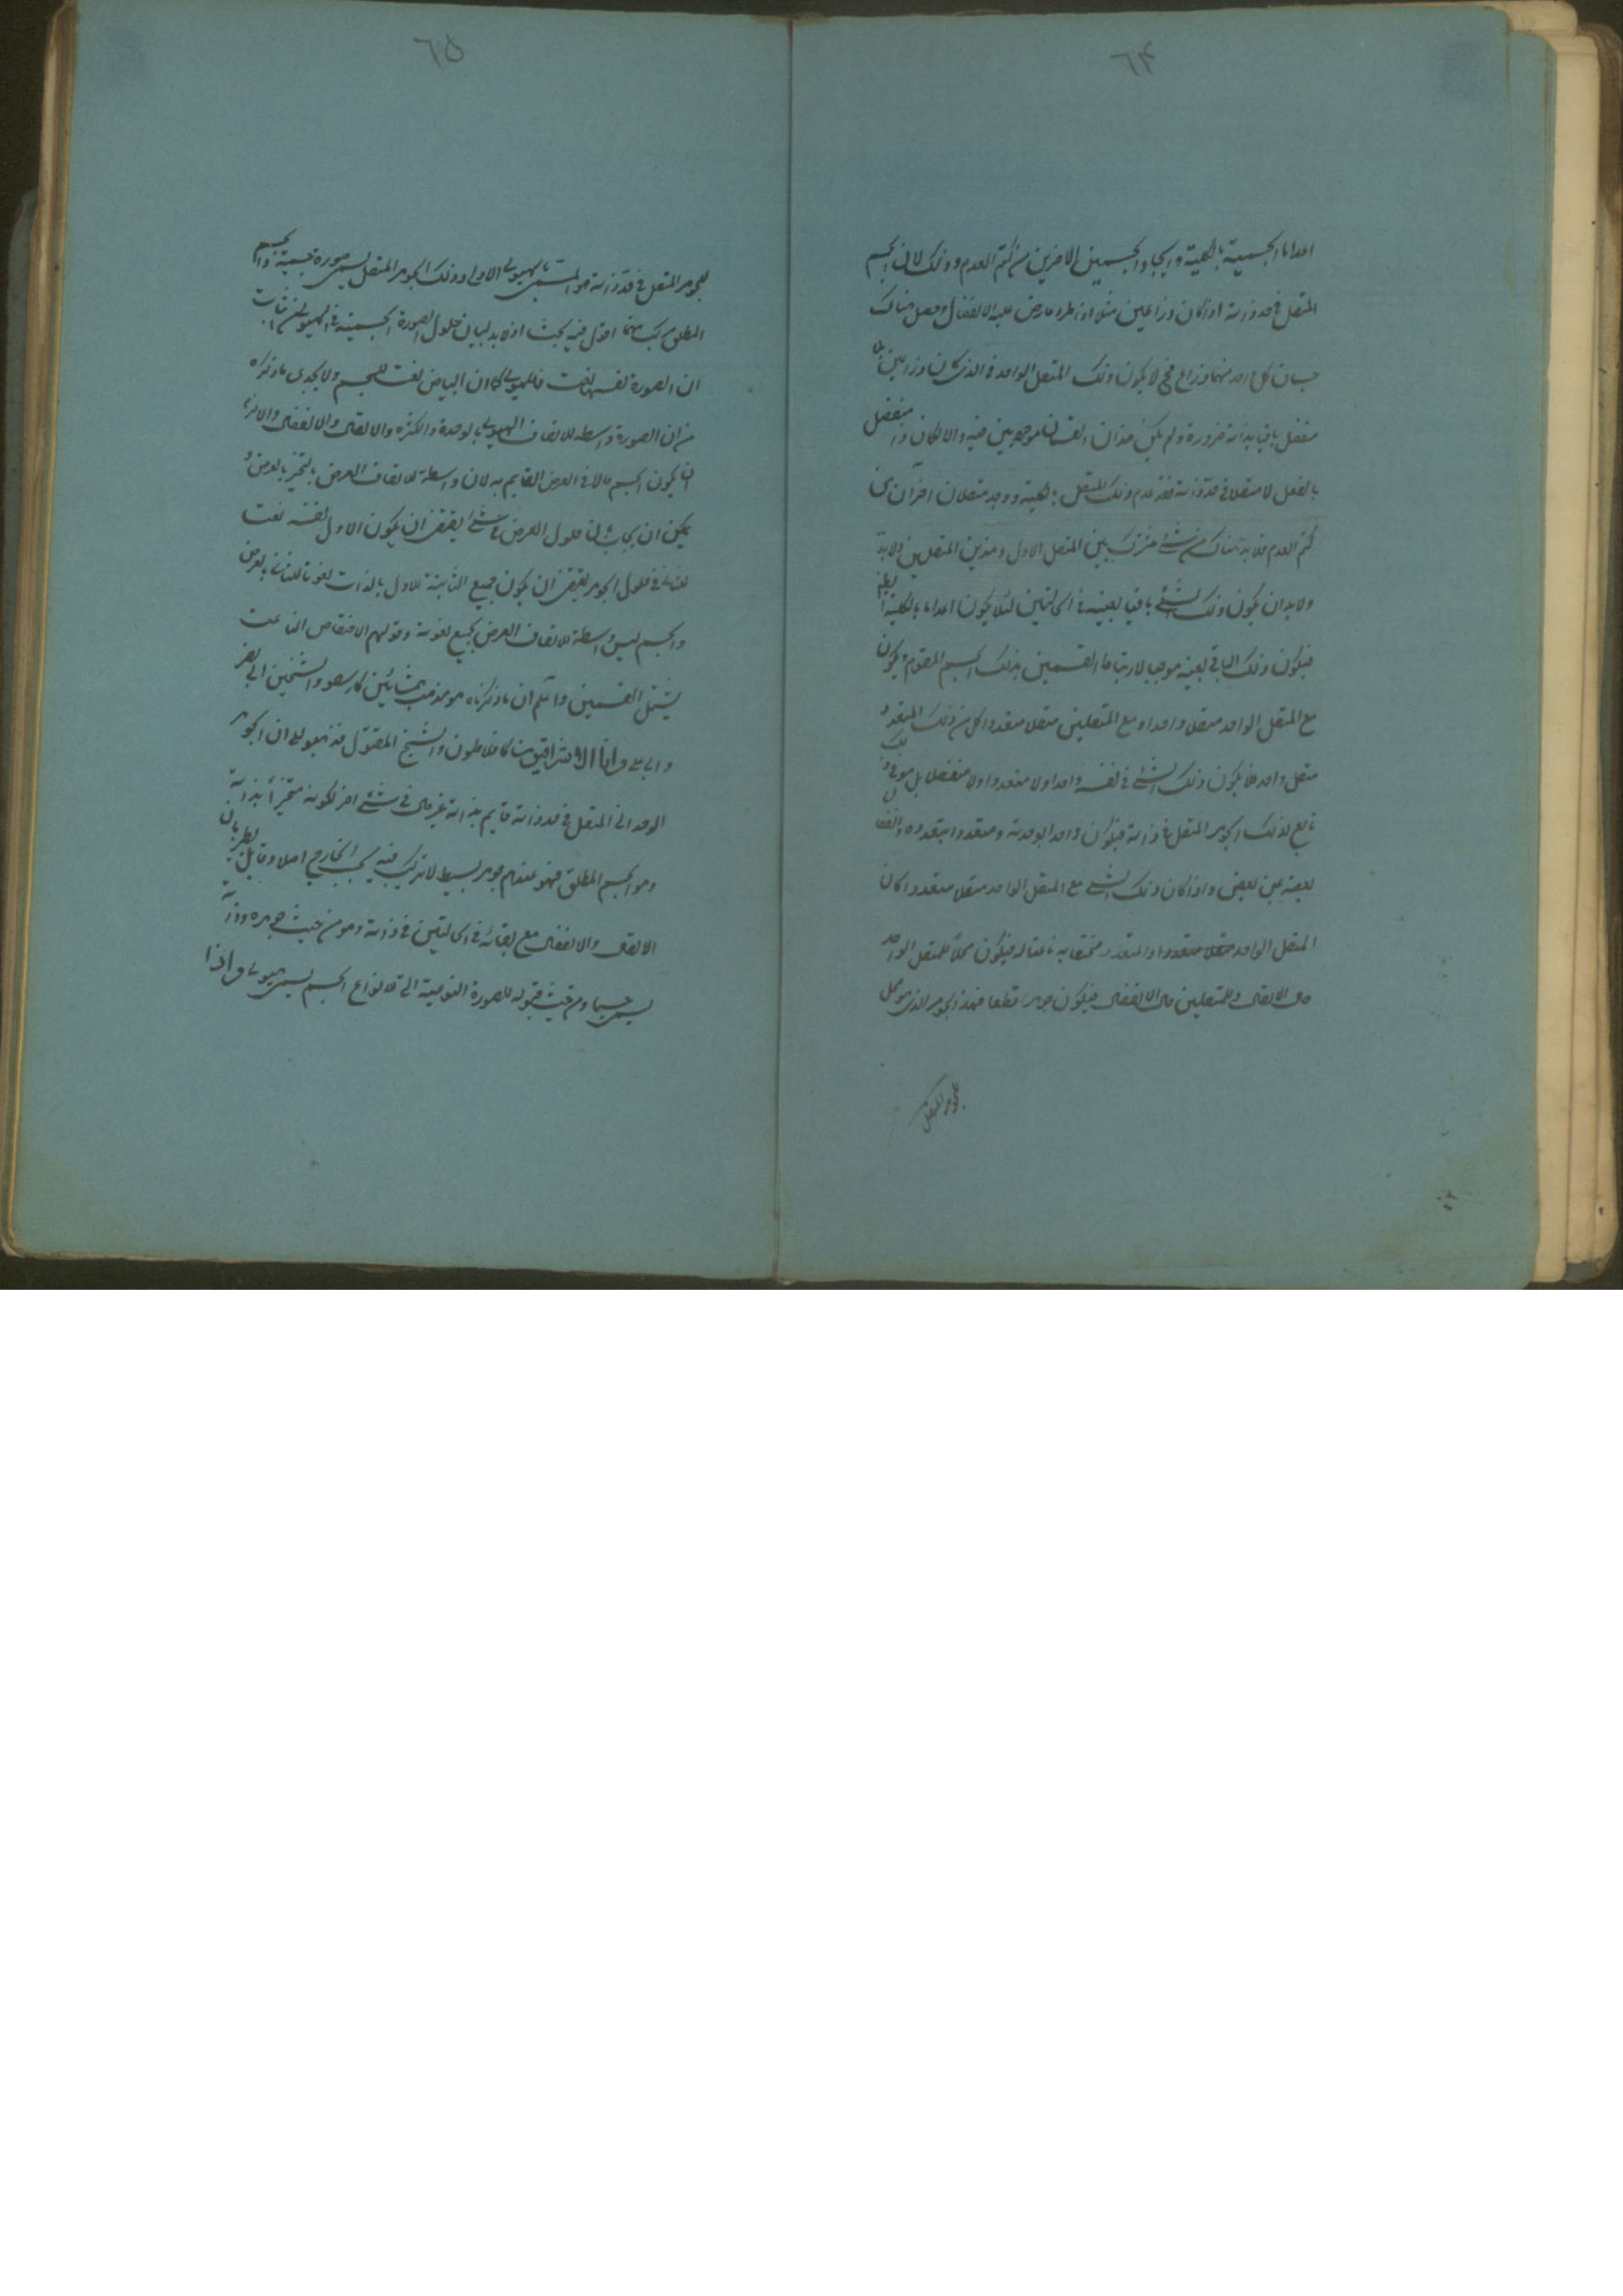 ٦۴
اعداما لجسمية بالكلية وايجادا لجسمين اخرين من كتم العدم وذلك لان الجسم
المتصل في حد ذاته اذا كان ذراعين مثلا اذا طرء عليه الانفصال وحصل هناك
جسمان كل واحد منهما ذراع فح لا يكون ذلك المتصل الواحد الذي كان ذراعين بلا
مفصل باقيا بذاته ضرورة ولم يكن هذان القسمان موجودين فيه والا لكان ذا مفصل
بالفعل لا متصلا في حد ذاته فقد عدم ذلك المتصل بالكلية ووجد متصلان اخران من
كتم العدم فلا بد هناك من شئ مشترك بين المتصل الاول وهذين المتصلين ولا بد
ولا بد ان يكون ذلك الشئ باقيا بعينه في الحالتين لئلا يكون اعداما بالكلية
فيكون ذلك الباقي بعينه موجبا لارتباط القسمين بذلك الجسم المقسوم ويكون
مع المتصل الواحد متصلا واحدا ومع المتصلين متصلا متعددا كل من ذلك المتعدد
متصل واحد فلا يكون ذلك الشئ في نفسه واحدا ولا متعددا ولا منفصلا بل هو في ذلك
تابع لذلك الجوهر المتصل في ذاته فيكون واحدا بوحدته ومتعددا بتعدده
بعضه عن بعض واذا كان ذلك الشئ مع المتصل الواحد متصلا متعددا كان
المتصل الواحد او المتعدد مختصا به ناعتا له فيكون محلا للمتصل الواحد
حال الاتصال وللمتصلين حال الانفصال فيكون جوهرا قطعا فهذا الجوهر الذي هو محل
للجوهر المتصل
٦۵
للجوهر المتصل في حد ذاته هو المسمى بالهيولى الاولى وذلك الجوهر المتصل يسمى صورة جسمية والجسم
المطلق مركب منهما اقول فيه بحث اذ لا بد لبيان حلول الصورة الجسمية في الهيولى من اثبات
ان الصورة نفسها نعت للهيولى كما ان البياض نعت للجسم ولا يجدى ما ذكره
من ان الصورة واسطة لاتصاف الهيولى بالوحدة والكثرة والاتصال والانفصال والا لزم
ان يكون الجسم حالا في العرض القايم به لانه واسطة لاتصاف العرض بالتحيز بالعرض و
يمكن ان يجاب بان حلول العرض في شئ يقتضى ان يكون الاول نفسه نعت
للثاني وحلول الجوهر يقتضى ان يكون جميع الثابتة للاول بالذات نعوتا للثاني بالعرض
والجسم ليس واسطة لاتصاف العرض بجميع نعوته وقولهم الاختصاص الناعت
يشتمل القسمين واعلم ان ما ذكرناه هو مذهب المشائين كارسطو والشيخين ابي نصر
وابي علي واما الاشراقيون كافلاطون والشيخ المقتول فذهبوا الى ان الجوهر
الوحداني المتصل في حد ذاته قايم بذاته غير حال في شئ اخر لكونه متحيزا بذاته
وهو الجسم المطلق فهو عندهم جوهر بسيط لا تركيب فيه بحسب الخارج اصلا وقابل لطريان
الاتصال والانفصال مع بقائه في الحالتين في ذاته وهو من حيث جوهره وذاته
يسمى جسما ومن حيث قبوله للصورة النوعية التي لانواع الجسم يسمى هيولى واذا